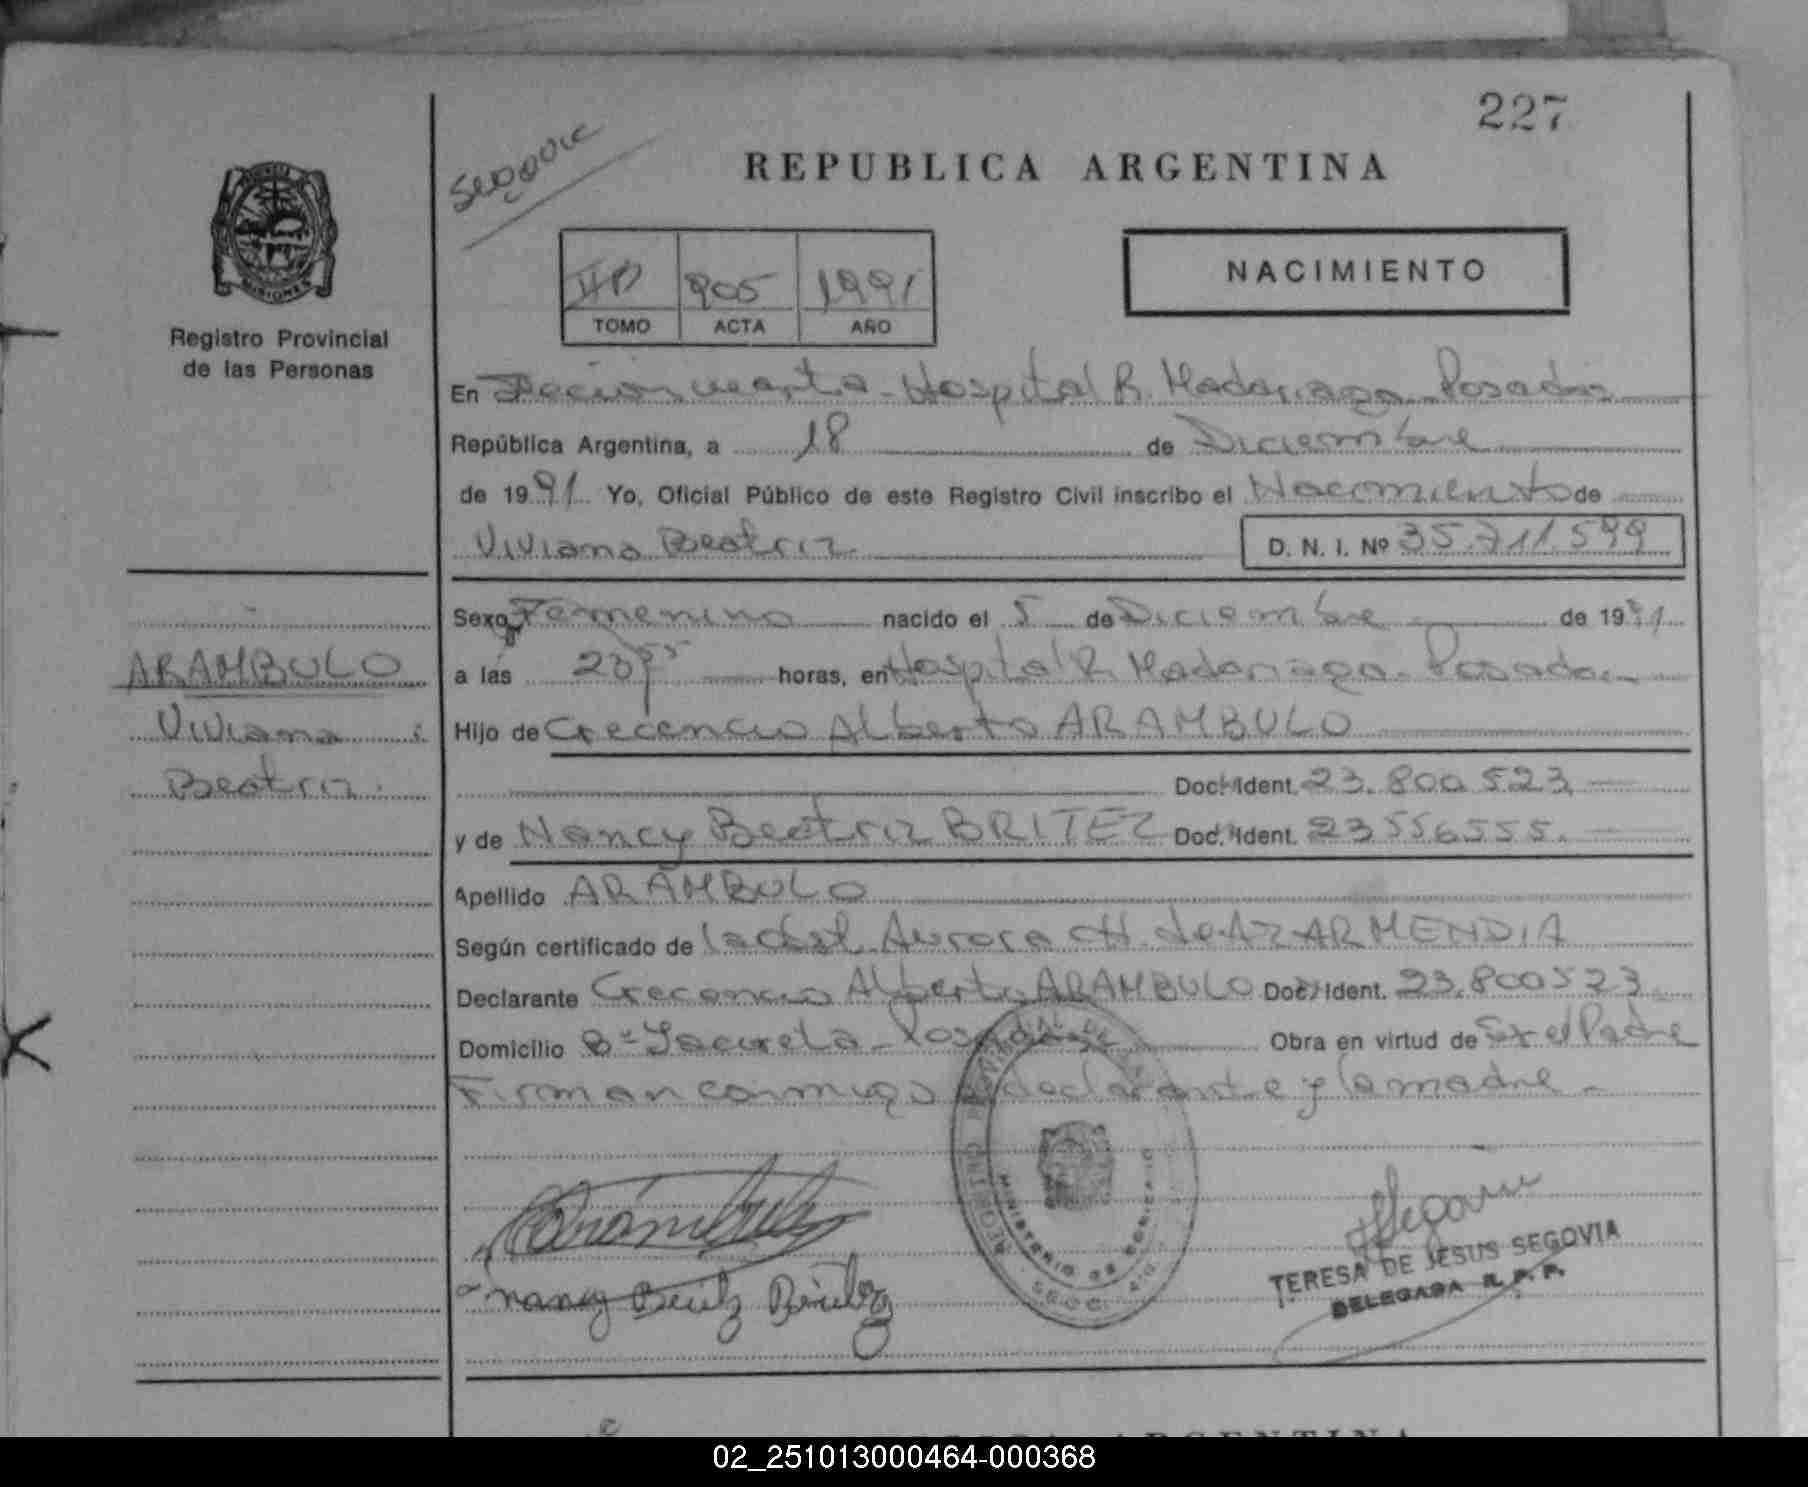 227
Segovia
REPUBLICA ARGENTINA
MISIONES
Registro Provincial
de las Personas
905 1991
TOMO ACTA AÑO
NACIMIENTO
En Sección cuarta - Hospital R. Madariaga - Posadas
República Argentina, a 18 de Diciembre
de 1991 Yo, Oficial Público de este Registro Civil inscribo el Nacimiento de
Viviana Beatriz D. N. I. Nº 35.711.599
Sexo Femenino nacido el 5 de Diciembre de 1991
a las 20 55 horas, en Hospital R. Madariaga - Posadas
Hijo de Crecencio Alberto ARAMBULO
Doc. Ident. 23.800.523
y de Nancy Beatriz BRITEZ Doc. Ident. 23556555.
Apellido ARAMBULO
Según certificado de la obst. Aurora CH. de AZARMENDIA
Declarante Crecencio Alberto ARAMBULO Doc. Ident. 23.800523
Domicilio Bº Yacireta - Posadas Obra en virtud de Ser el Padre
Firman conmigo declarante y la madre -
ARAMBULO
Viviana
Beatriz
Segovia
TERESA DE JESUS SEGOVIA
DELEGADA R. P. P.
REGISTRO PROVINCIAL DE
MINISTERIO DE GOBIERNO
Nancy Beatriz Britez
ARGENTINA
02_251013000464-000368